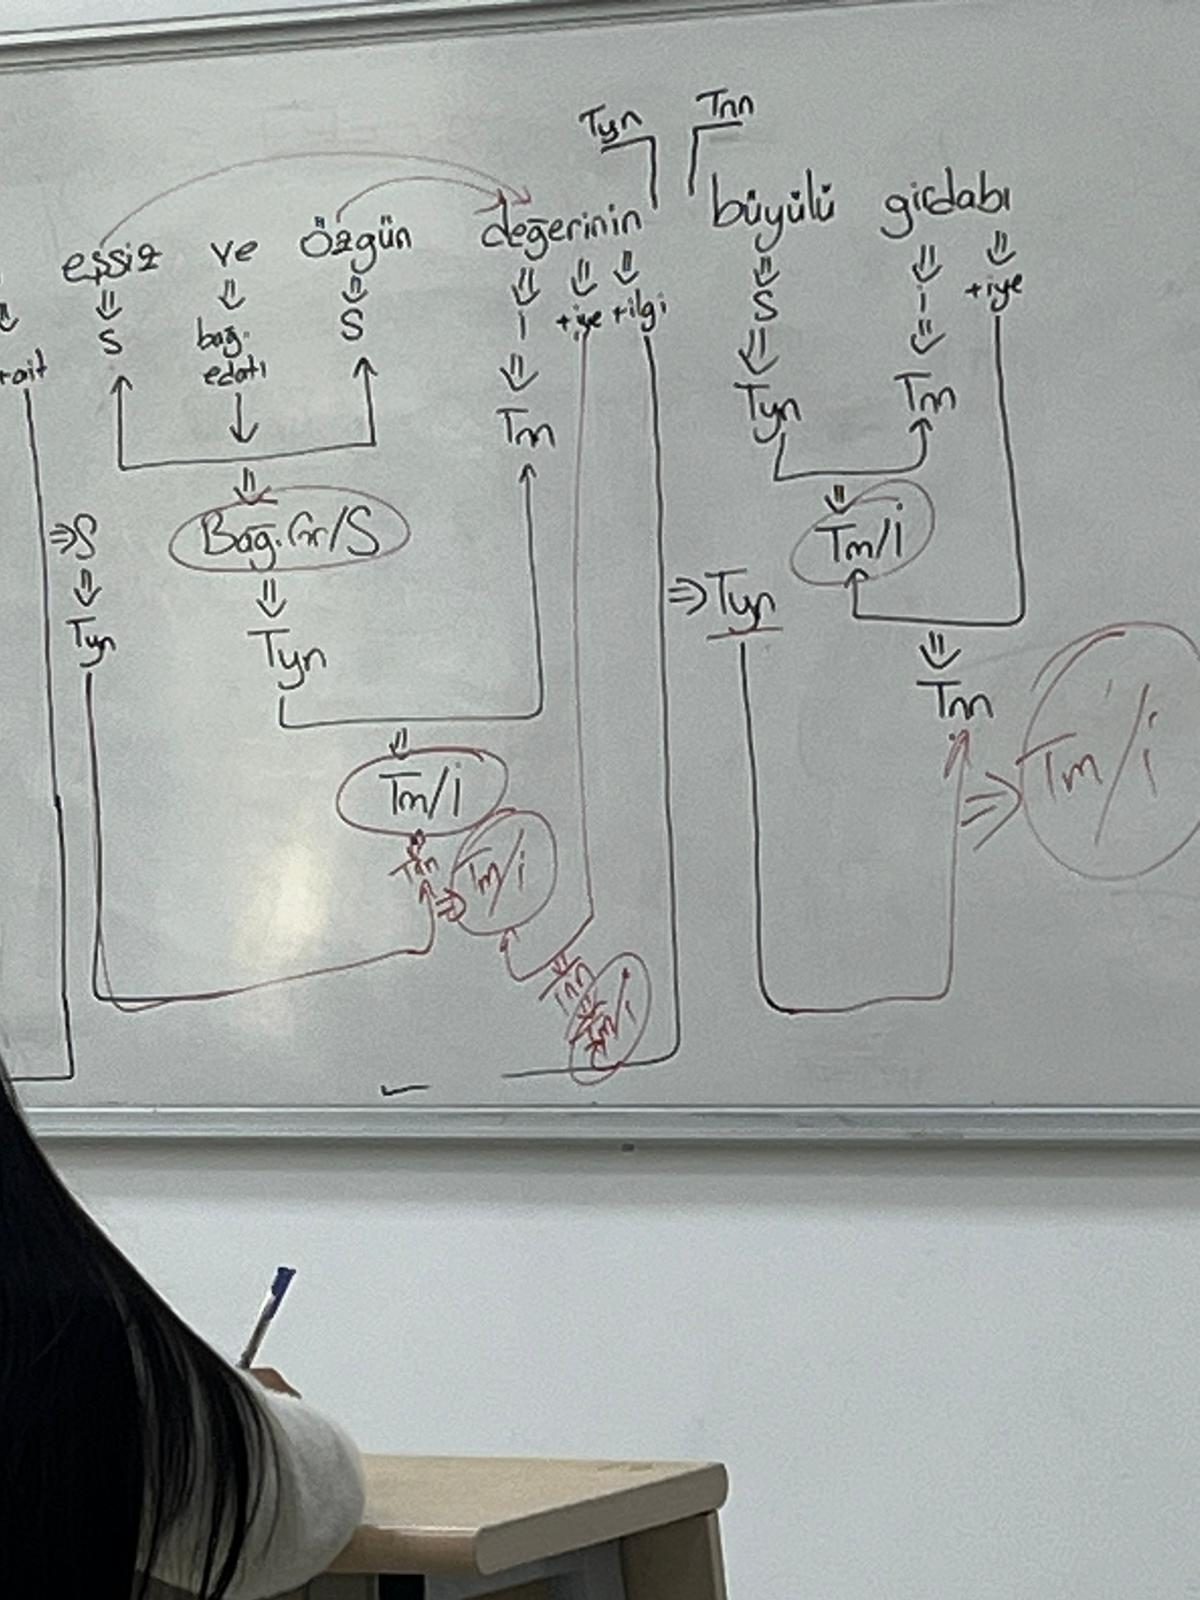 Tyn Tnn
eşsiz ve özgün değerinin büyülü girdabı
S bağ. edatı S i +iye +ilgi S i +iye
+ait
Tm Tyn Tm
⇒S Bağ.Gr/S Tm/i
Tyn Tyn ⇒Tyn
Tnn
Tm/i ⇒ Tm/i
Tnn ⇒ Tm/i
Tnn
Tm/i